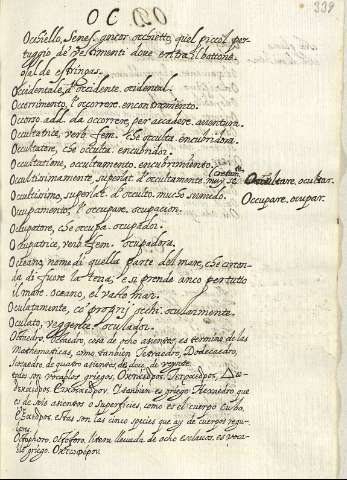 O C
339
Occhiello, Senes. ancor occhietto, quel piccol per-
tuggio de' vestimenti dove entra il bottone.
ojal de estringas.
Occidentale, d'occidente. ocidental.
Occorrimento, l'occorere. encontramento.
Occorso add. da occorrere, per accadere. aventura.
Occultatrice, verb. fem. che occulta. encubridora.
Occultatore, che occulta. encubridor.
Occultatione, occultamento. encubrimiento.
Occultissimamente, superlat. d'occultamente. muy se-
cretam.te
Occultare, ocultar.
Occultissimo, superlat. d'occulto. mucho
Occupare. ocupar.
Occupamento, l'occupare. ocupacion.
Occupatore, che occupa. ocupador.
Occupatrice, verb. fem. ocupadora.
Oceano, nome di quella parte del mare, che circon-
da di fuore la terra, e si prende anco per tutto
il mare. oceano, el vasto mar.
Oculatamente, co' proprij occhi. ocularmente.
Oculato, veggente. oculador.
Octaedro, cosa de ocho asientos, es termino de las
Mathematicas, como tanbien Tetraedro, Dodecaedro,
de quatro asientos de doce, de veynte
todos son vocablos griegos.
Tanbien es griego Hexaedro que
es de solo asientos o superficies, como es el cuerpo cubo.
estas son las cinco species que ay de cuerpos regu-
lares.
Octophoro, litera llevada de ocho esclavos, es voca-
blo griego.